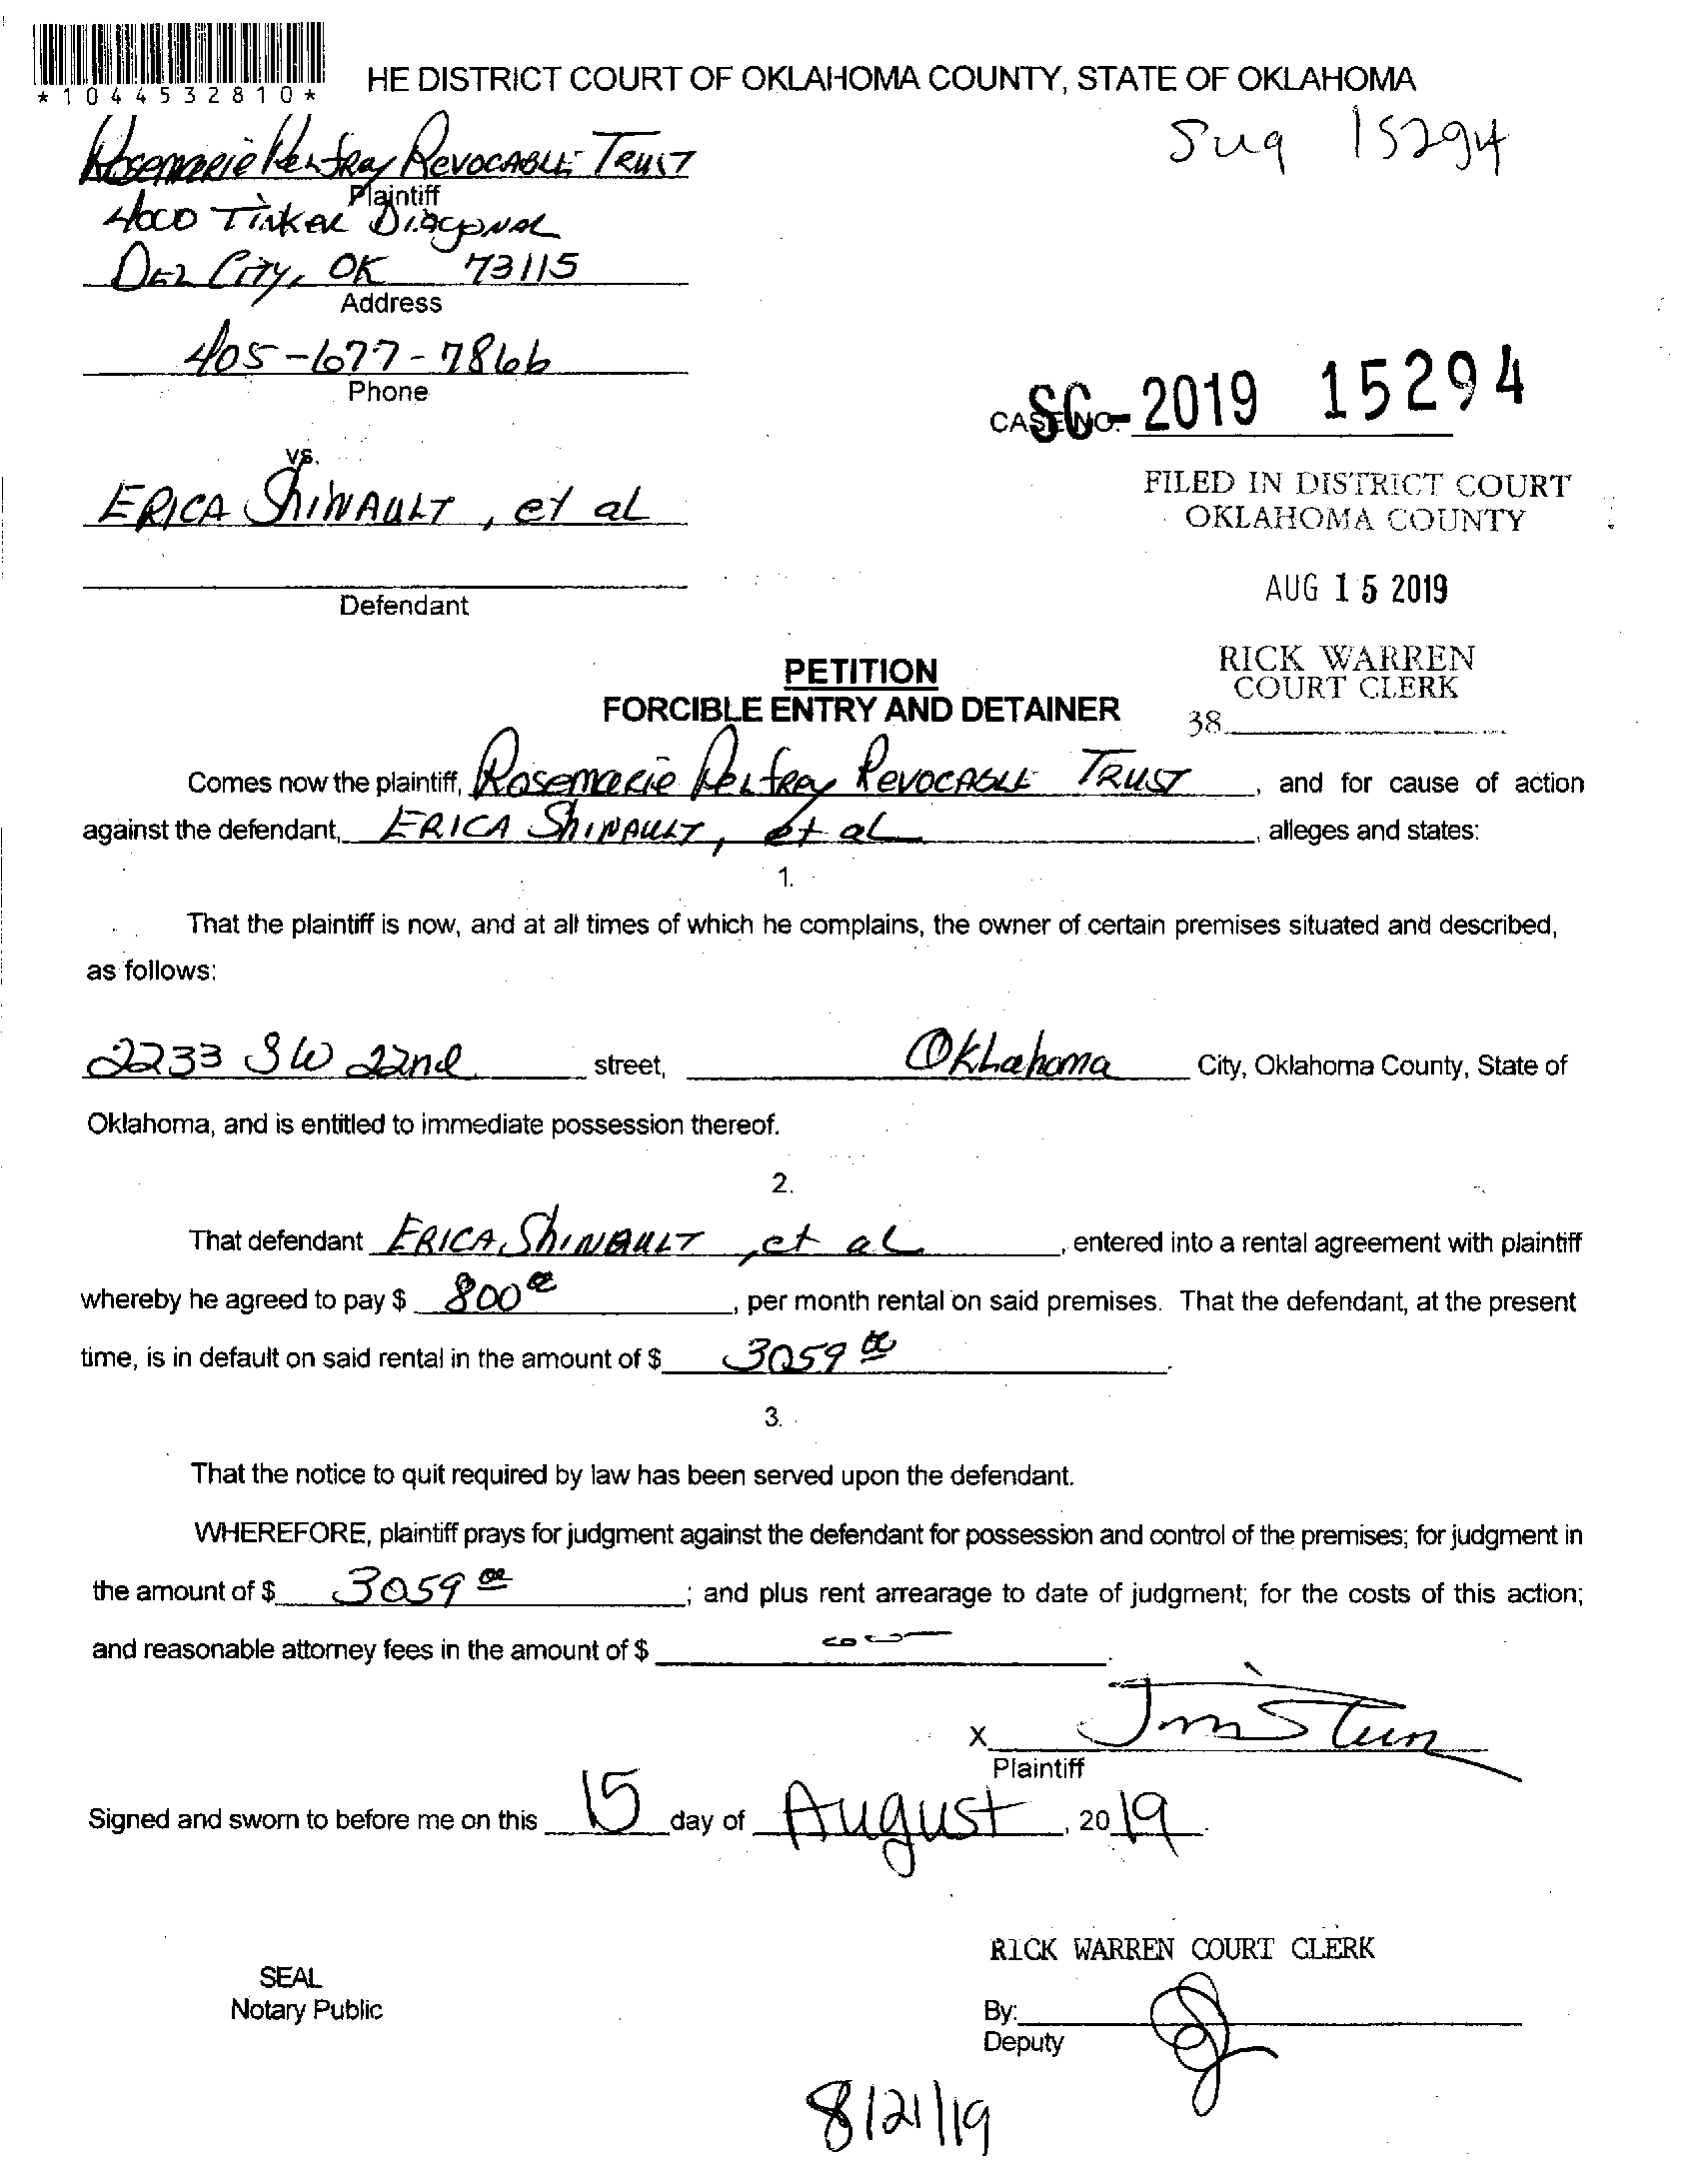 *1044532810*
HE DISTRICT COURT OF OKLAHOMA COUNTY, STATE OF OKLAHOMA
Rosemarie Revocable Trust
15294
Plaintiff
4000 Tinker Diagonal
Del City, OK 73115
Address
405-677-7866
Phone
CASE NO. SC-2019 15294
vs.
ERICA ShINAULT, et al
FILED IN DISTRICT COURT
OKLAHOMA COUNTY
AUG 15 2019
Defendant
RICK WARREN
COURT CLERK
38
PETITION
FORCIBLE ENTRY AND DETAINER
Comes now the plaintiff, Rosemarie Revocable Trust, and for cause of action
against the defendant, ERICA ShINAULT, et al, alleges and states:
1.
That the plaintiff is now, and at all times of which he complains, the owner of certain premises situated and described,
as follows:
2233 SW 22nd street, Oklahoma City, Oklahoma County, State of
Oklahoma, and is entitled to immediate possession thereof.
2.
That defendant ERICA ShINAULT, et al, entered into a rental agreement with plaintiff
whereby he agreed to pay $ 800 00, per month rental on said premises. That the defendant, at the present
time, is in default on said rental in the amount of $ 3059 00.
3.
That the notice to quit required by law has been served upon the defendant.
WHEREFORE, plaintiff prays for judgment against the defendant for possession and control of the premises; for judgment in
the amount of $ 3059 00; and plus rent arrearage to date of judgment; for the costs of this action;
and reasonable attorney fees in the amount of $
X
Plaintiff
Signed and sworn to before me on this 15 day of August, 2019.
RICK WARREN COURT CLERK
SEAL
Notary Public
By:
Deputy
8/21/19